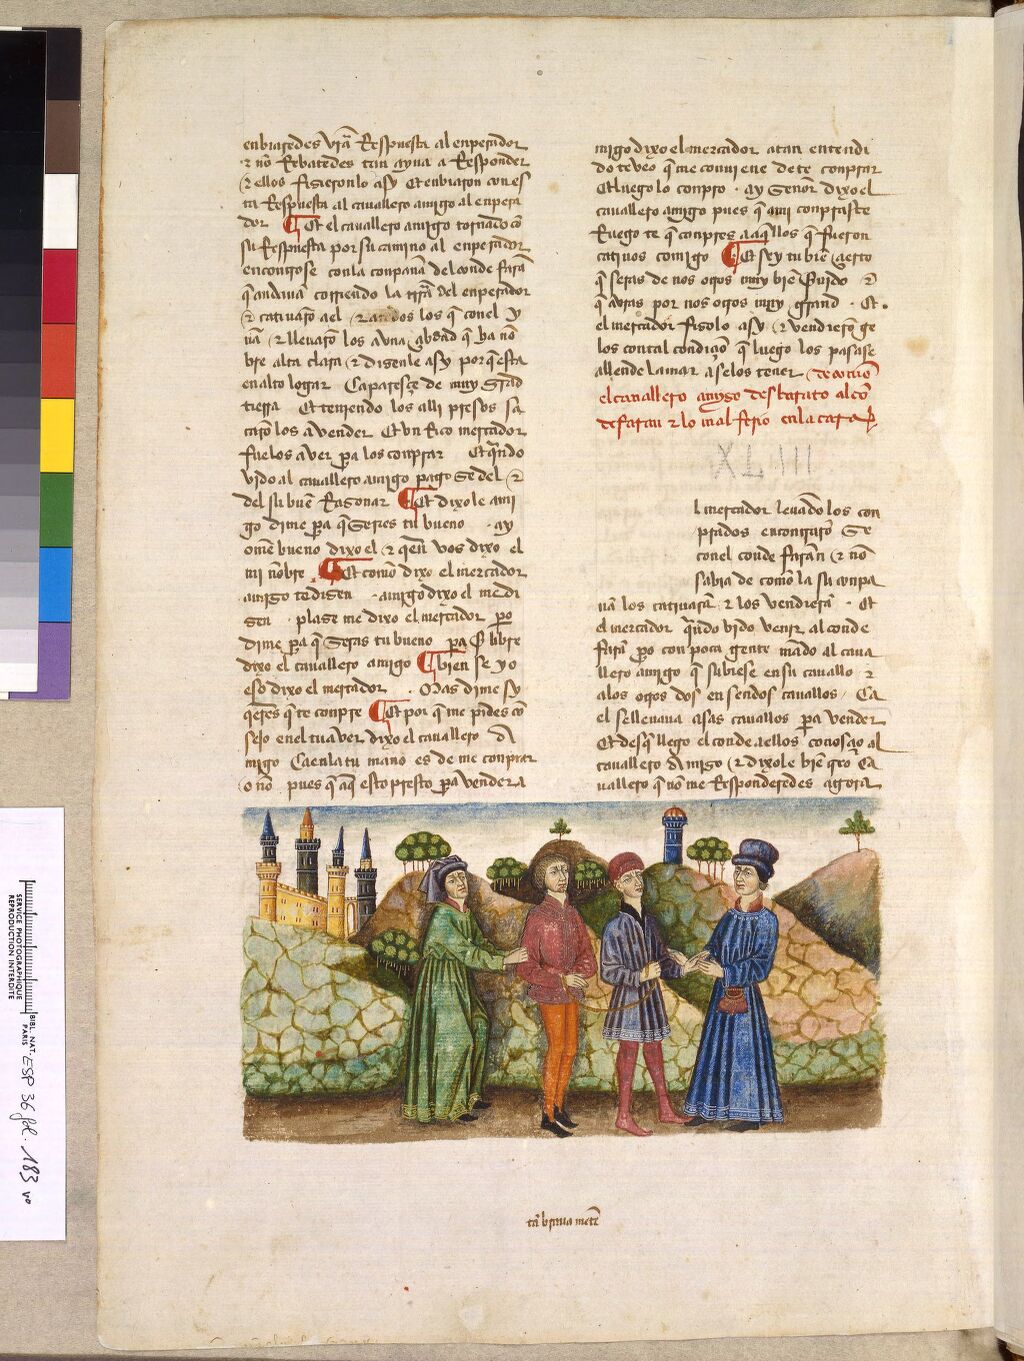 enbiaredes vrã Respuesta al enperador
& nõ Rebatedes tan ayna a Responder
& ellos fizieronlo asy Et enbiaron con es
ta Respuesta al cauallero amigo al enpera
dor Et el cauallero amigo tornãdo cõ
su Respuesta por su camino al enperador
encontrose con la conpaña del conde farã
que andiua corriendo la trrã del enperador
& catiuarõ a el & a todos los que con el y
uã & lleuarõ los a vna çibdad que ha nõ
bre alta clara & dizenle asy por que esta
en alto logar Ca paresçe de muy grãd
tierra Et teniendo los alli presos sa
carõ los a vender Et vn Rico mercador
fuelos a ver pa los conprar Et quãdo
vido al cauallero amigo pago se del &
del su buẽ Razonar Et dixole ami
go dime pa que seres tu bueno ay
omẽ bueno dixo el & quien vos dixo el
mi nõbre Et como dixo el mercador
amigo te dizen amigo dixo el me di
zen plase me dixo el mercador po
dime pa que seras tu bueno pa ser libre
dixo el cauallero amigo bien se yo
eso dixo el mercador Mas dime sy
queres que te conpre Et por que me pides cõ
sejo en el tu auer dixo el cauallero A
migo Ca en la tu mano es de me conprar
o nõ pues que aqui esto presto pa vender a
migo dixo el mercador a tan entendi
do te veo que me conuiene de te conprar
Et luego lo conpro ay señor dixo el
cauallero amigo pues que a mi conpraste
Ruego te que conpres a aquellos que fueron
catiuos comigo Et sey tu biẽ çierto
que seras de nos otros muy biẽ seruido &
que auras por nos otros muy grand Et
el mercador fizolo asy & vendierõ ge
los con tal condiçiõ que luego los pasase
allende la mar a se los tener de como
el cauallero amigo desbarato al cõ
de faran & lo mal firio en la cara
XLIII
l mercador leuãdo los con
prados encontrarõ se
con el conde farãn & nõ
sabia de como la su conpa
ñã los catiuarã & los vendierã Et
el mercador quãdo vido venir al conde
farã pero con poca gente mãdo al caua
llero amigo que subiese en su cauallo &
a los otros dos en sendos cauallos Ca
el se lleuaua asas cauallos pa vender
Et desque llego el conde a ellos conosçio al
cauallero Amigo & dixole biẽ creo Ca
uallero que nõ me Responderedes agora
BIBL. NAT.
PARIS
SERVICE PHOTOGRAPHIQUE
REPRODUCTION INTERDITE
ESP 36 fol. 183 vo